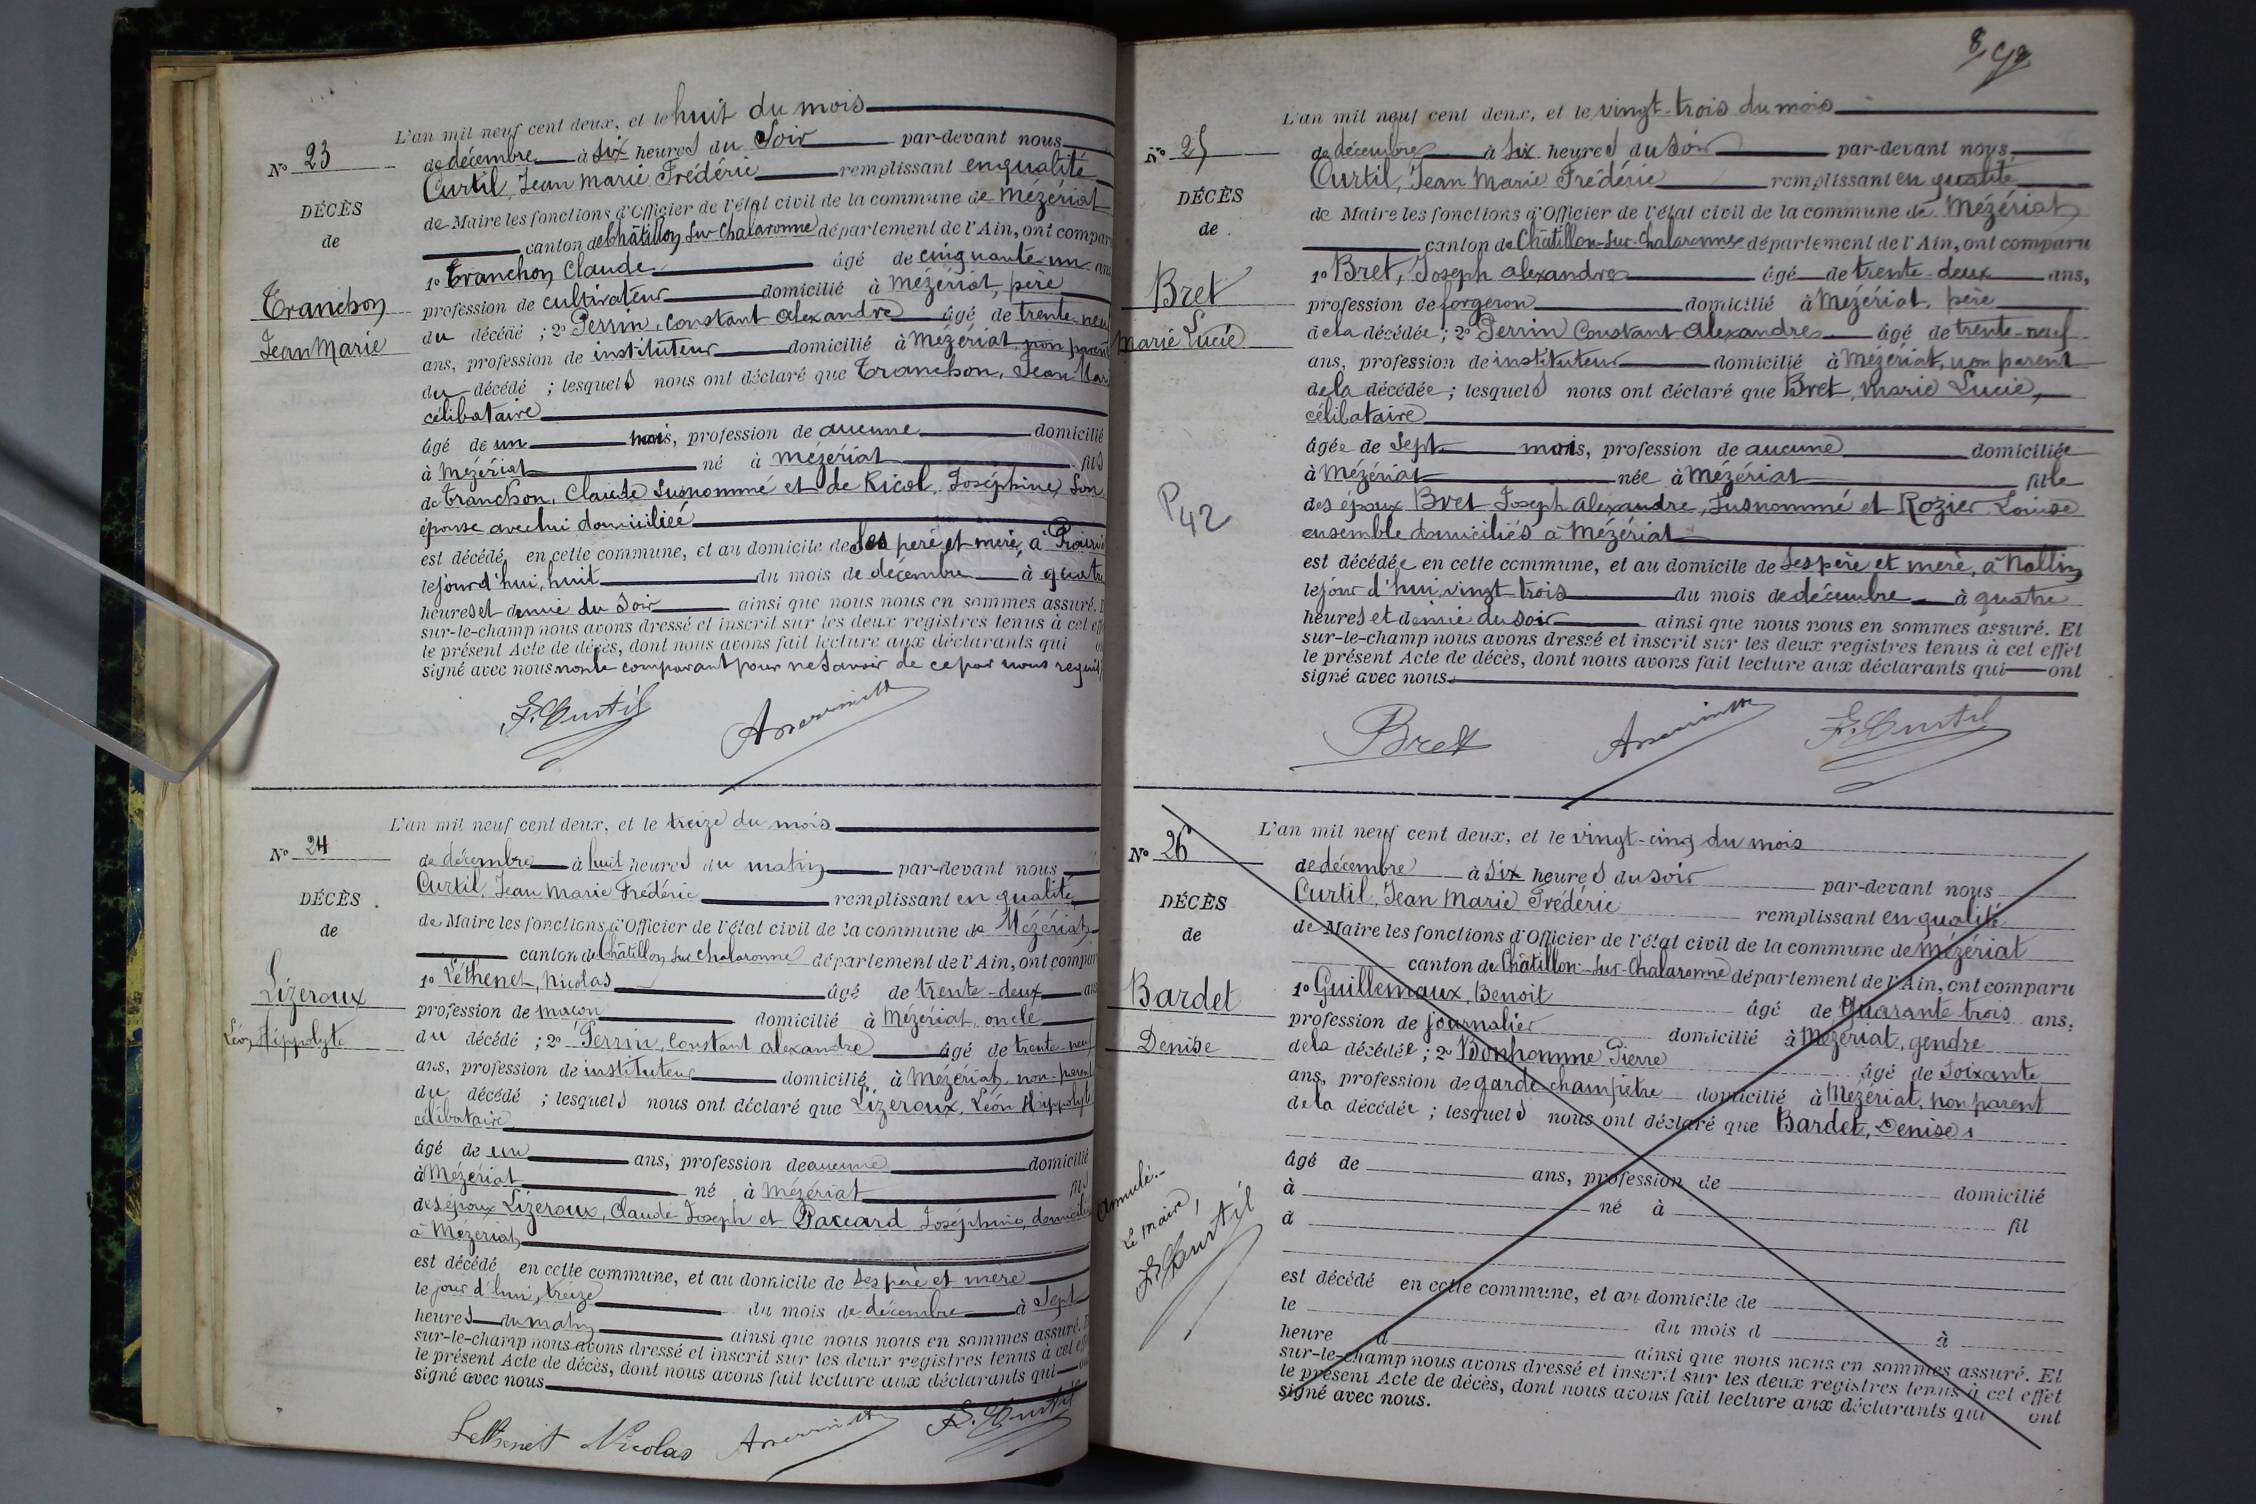 L'an mil neuf cent deux, et le huit du mois
N° 23
de décembre à six heures du soir par-devant nous
Curtil, Jean Marie Frédéric remplissant en qualité
DÉCÈS
de Maire les fonctions d'Officier de l'état civil de la commune de Mézériat
de
canton de Châtillon sur Chalaronne département de l'Ain, ont compar
1° Tranchon Claude âgé de cinquante un ans
Tranchon
profession de cultivateur domicilié à Mézériat, père
Jean Marie
du décédé ; 2° Perrin, Constant Alexandre âgé de trente-neuf
ans, profession de instituteur domicilié à Mézériat non parent
du décédé ; lesquels nous ont déclaré que Tranchon, Jean Mar
célibataire
âgé de un mois, profession de aucune domicilié
à Mézériat né à Mézériat fils
de Tranchon, Claude susnommé et de Ricol, Joséphine, son
épouse avec lui domiciliée
est décédé en cette commune, et au domicile de ses père et mère, à
le jour d'hui, huit du mois de décembre à quatre
heures et demie du soir ainsi que nous nous en sommes assuré.
sur-le-champ nous avons dressé et inscrit sur les deux registres tenus à cet eff
le présent Acte de décès, dont nous avons fait lecture aux déclarants qui
signé avec nous non le comparant pour ne savoir de ce par nous requis
F. Curtil
L'an mil neuf cent deux, et le treize du mois
N° 24
de décembre à huit heures du matin par-devant nous
Curtil, Jean Marie Frédéric remplissant en qualité
DÉCÈS
de Maire les fonctions d'Officier de l'état civil de la commune de Mézériat
de
canton de Châtillon sur Chalaronne département de l'Ain, ont compar
Lizeroux
1° Léthenet, Nicolas âgé de trente-deux ans
Léon Hippolyte
profession de maçon domicilié à Mézériat, oncle
du décédé ; 2° Perrin, Constant Alexandre âgé de trente-neuf
ans, profession de instituteur domicilié à Mézériat, non parent
du décédé ; lesquels nous ont déclaré que Lizeroux, Léon Hippolyte
célibataire
âgé de un ans, profession de aucune domicilié
à Mézériat né à Mézériat fils
des époux Lizeroux, Claude Joseph et Paccard Joséphine, domiciliés
à Mézériat
est décédé en cette commune, et au domicile de ses père et mère
le jour d'hui, treize du mois de décembre à sept
heures du matin ainsi que nous nous en sommes assuré.
sur-le-champ nous avons dressé et inscrit sur les deux registres tenus à cet eff
le présent Acte de décès, dont nous avons fait lecture aux déclarants qui
signé avec nous
Lethenet Nicolas F. Curtil
8
L'an mil neuf cent deux, et le vingt-trois du mois
N° 25
de décembre à six heures du soir par-devant nous
Curtil, Jean Marie Frédéric remplissant en qualité
DÉCÈS
de Maire les fonctions d'Officier de l'état civil de la commune de Mézériat
de
canton de Châtillon-sur-Chalaronne département de l'Ain, ont comparu
Bret
1° Bret, Joseph Alexandre âgé de trente-deux ans,
Marie Lucie
profession de forgeron domicilié à Mézériat, père
de la décédée ; 2° Perrin Constant Alexandre âgé de trente-neuf
ans, profession de instituteur domicilié à Mézériat, non parent
de la décédée ; lesquels nous ont déclaré que Bret, Marie Lucie,
célibataire
âgée de sept mois, profession de aucune domiciliée
à Mézériat née à Mézériat fille
P42
des époux Bret Joseph Alexandre, susnommé et Rozier Louise
ensemble domiciliés à Mézériat
est décédée en cette commune, et au domicile de ses père et mère, à
le jour d'hui, vingt trois du mois de décembre à quatre
heures et demie du soir ainsi que nous nous en sommes assuré. Et
sur-le-champ nous avons dressé et inscrit sur les deux registres tenus à cet effet
le présent Acte de décès, dont nous avons fait lecture aux déclarants qui ont
signé avec nous.
Bret F. Curtil
L'an mil neuf cent deux, et le vingt-cinq du mois
N° 26
de décembre à six heures du soir par-devant nous
Curtil, Jean Marie Frédéric remplissant en qualité
DÉCÈS
de Maire les fonctions d'Officier de l'état civil de la commune de Mézériat
de
canton de Châtillon-sur-Chalaronne département de l'Ain, ont comparu
Bardet
1° Guillemaux, Benoit âgé de quarante trois ans,
Denise
profession de journalier domicilié à Mézériat, gendre
de la décédée ; 2° Bonhomme Pierre âgé de soixante
ans, profession de garde champêtre domicilié à Mézériat, non parent
de la décédée ; lesquels nous ont déclaré que Bardet, Denise,
âgé de ans, profession de domicilié
à né à
à fil
Annulé.-
Le maire,
F. Curtil
est décédé en cette commune, et au domicile de
le du mois d à
heure d ainsi que nous nous en sommes assuré. Et
sur-le-champ nous avons dressé et inscrit sur les deux registres tenus à cet effet
le présent Acte de décès, dont nous avons fait lecture aux déclarants qui ont
signé avec nous.